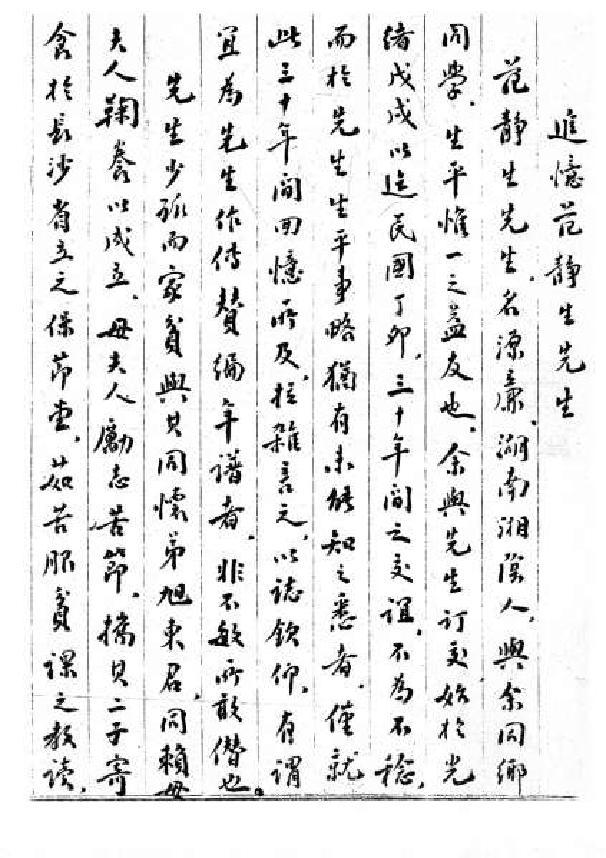 追憶范静生先生
范静生先生、名源廉、湖南湘陰人、與余同鄉
同學、生平惟一之益友也、余與先生訂交始於光
緒戊戌以迄民國丁卯、三十年間之交誼、不為不稔、
而於先生生平事略猶有未能知之悉者、僅就
此三十年間回憶所及、拉雜言之、以誌欽仰、有謂
宜為先生作傳贊編年譜者、非不敏所敢僭也。
先生少孤而家貧與其同懷弟旭東君、同賴母
夫人鞠養以成立、母夫人勵志苦節、攜其二子寄
食於長沙省立之保節堂、茹苦服貧課之教讀、